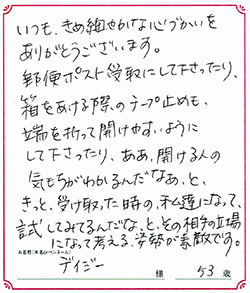 いつも、きめ細やかな心づかいを
ありがとうございます。
郵便ポスト受取にして下さったり、
箱をあける際のテープ止めも、
端を折って開けやすいように
して下さったり、ああ、開ける人の
気もちがわかるんだなぁ、と、
きっと、受け取った時の、私達になって、
試してみてるんだな、と、その相手の立場
になって考える、姿勢が素敵です。
お名前(本名orペンネーム)
デイジー 様 53 歳